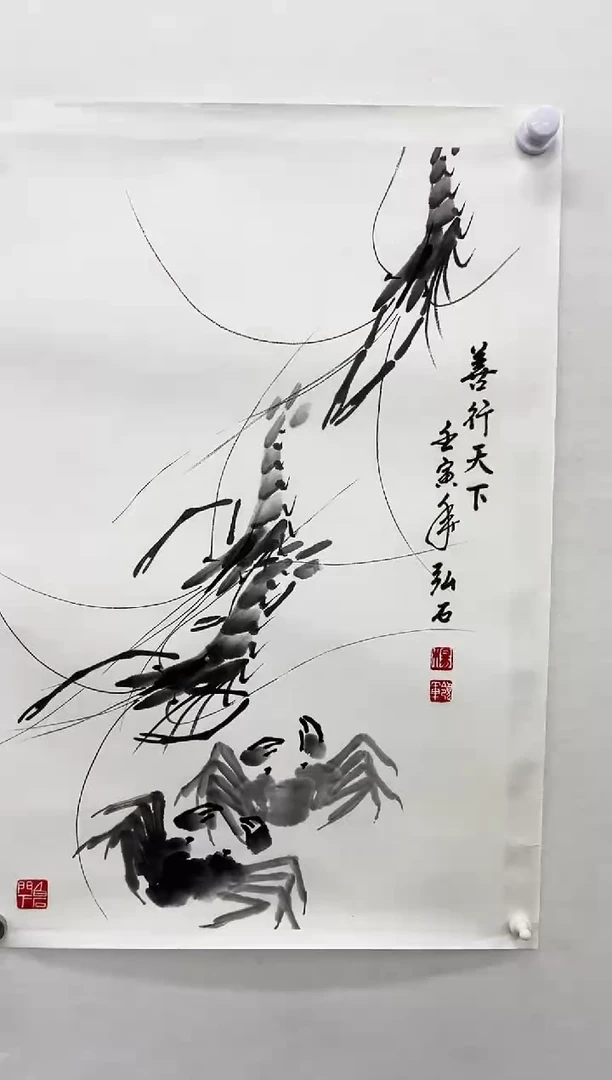 善行天下
壬寅年 弘石